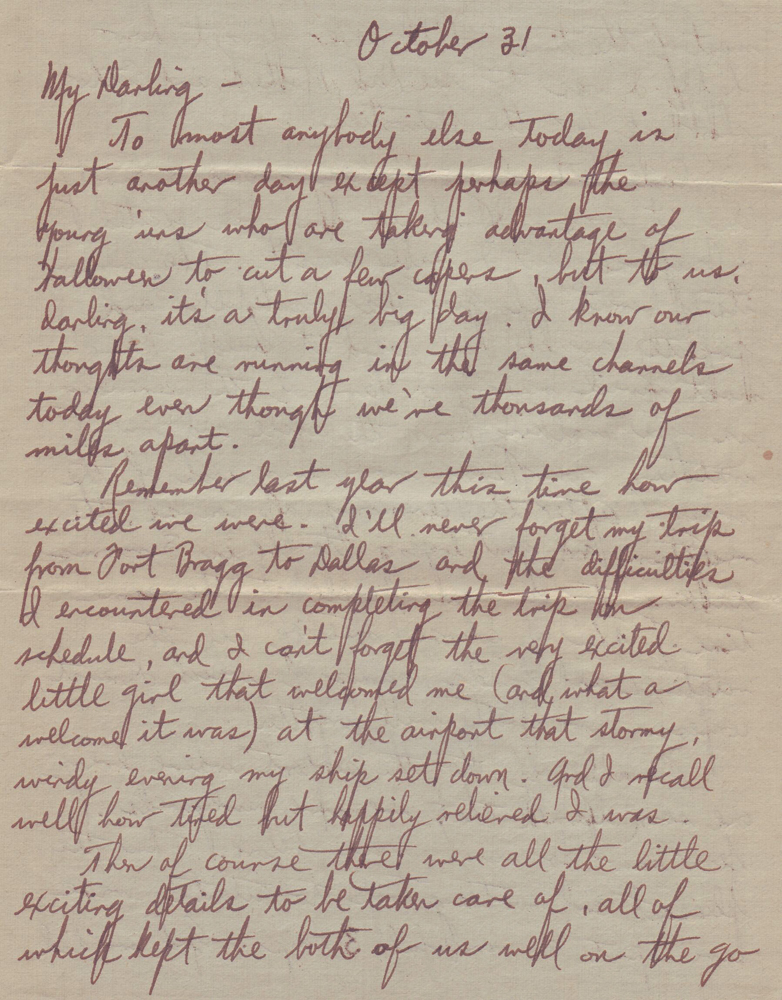 October 31
My Darling -
To most anybody else today is
just another day except perhaps the
young 'uns who are taking advantage of
Halloween to cut a few capers, but to us,
darling, it's a truly big day. I know our
thoughts are running in the same channels
today even though we're thousands of
miles apart.
Remember last year this time how
excited we were. I'll never forget my trip
from Fort Bragg to Dallas and the difficulties
I encountered in completing the trip on
schedule, and I can't forget the very excited
little girl that welcomed me (and what a
welcome it was) at the airport that stormy,
windy evening my ship set down. And I recall
well how tired but happily relieved I was.
Then of course there were all the little
exciting details to be taken care of, all of
which kept the both of us well on the go